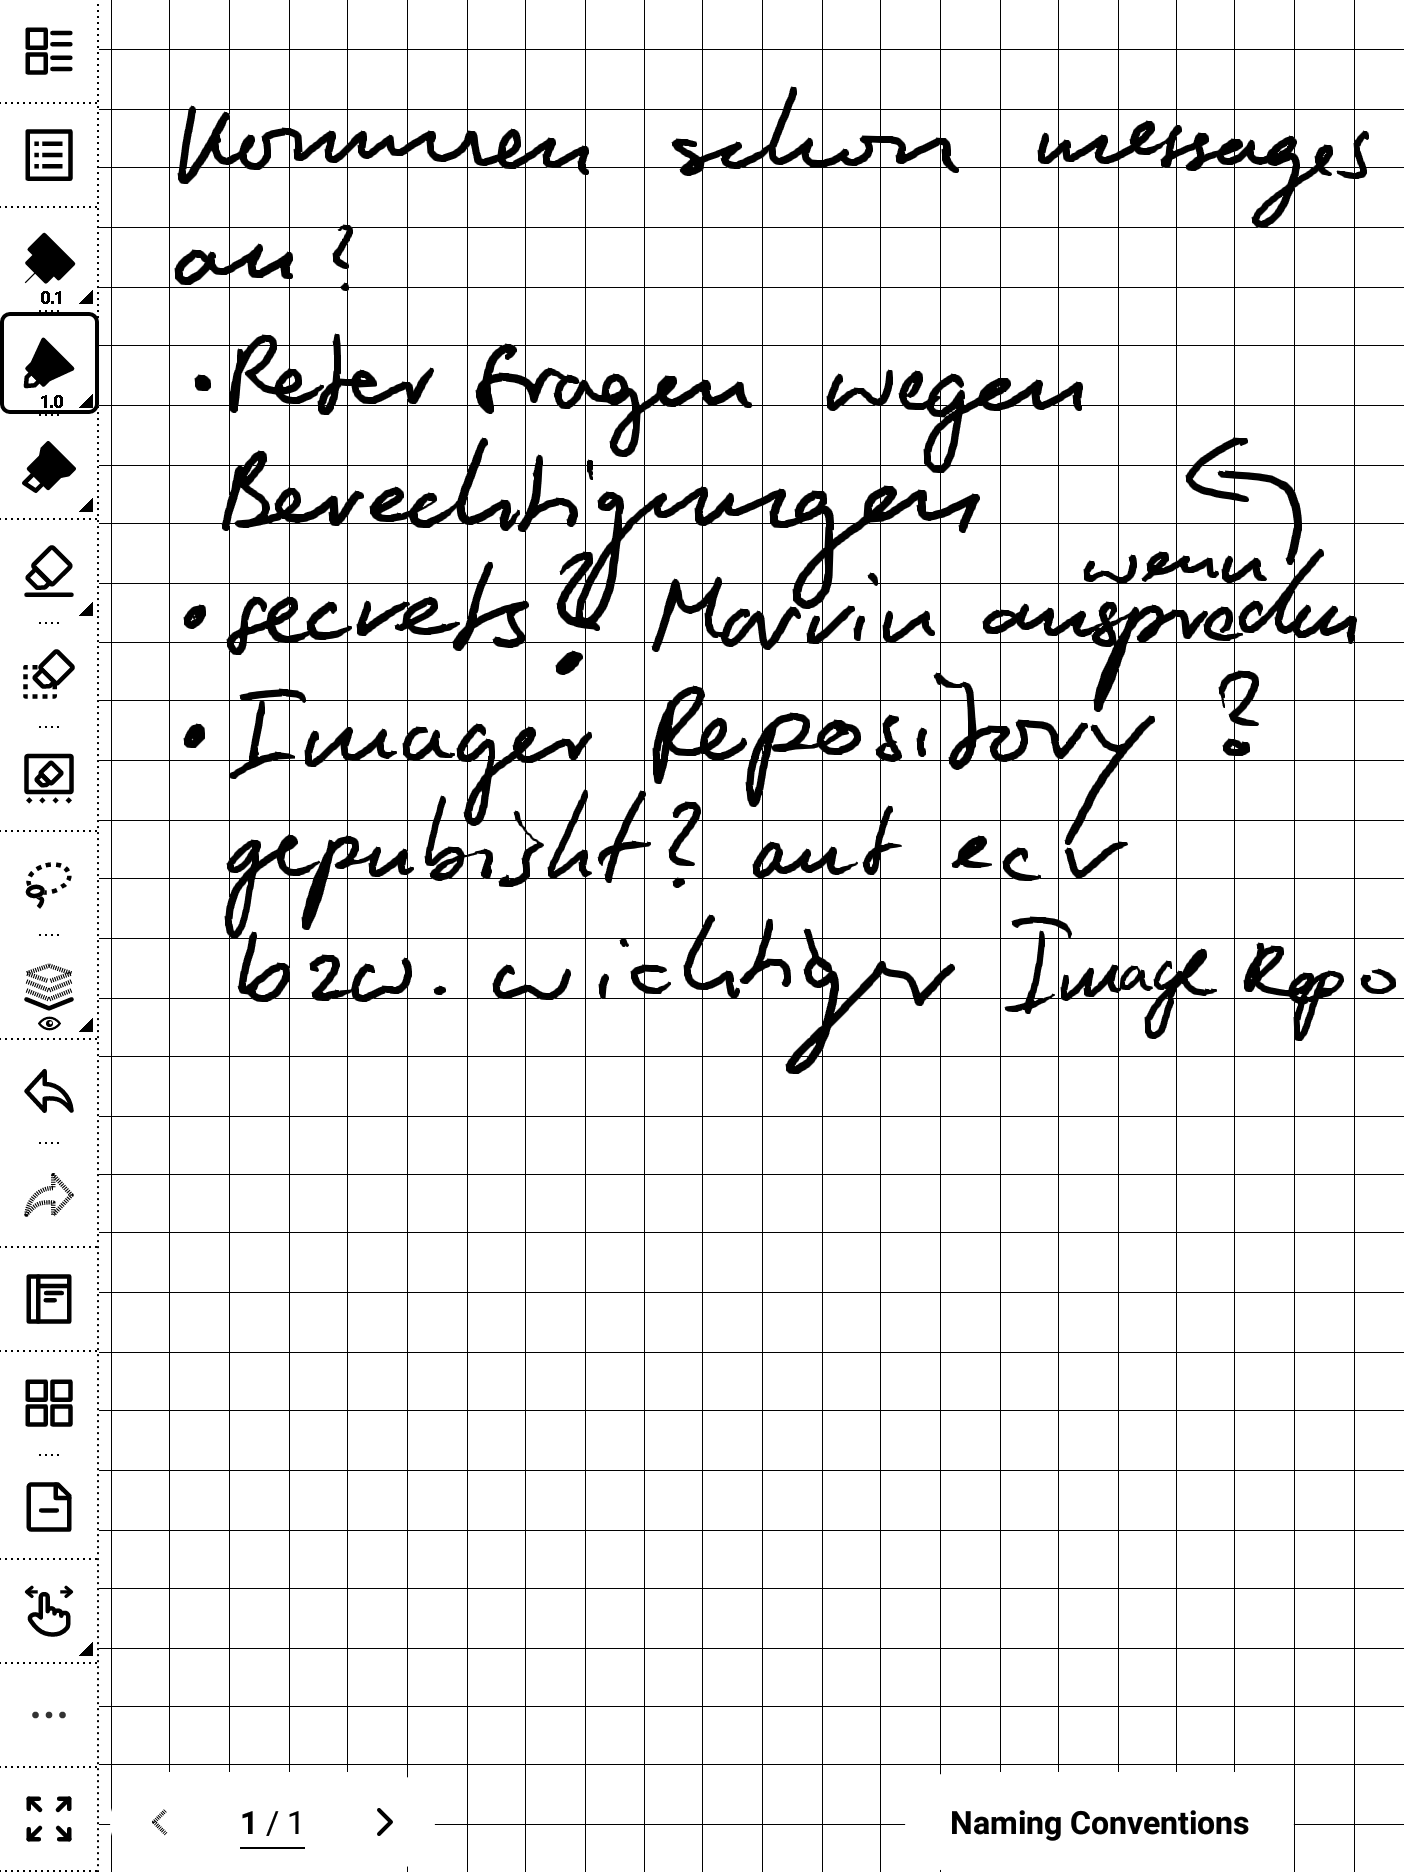 Kommen schon messages
an?
• Peter fragen wegen
Berechtigungen
wenn
• secrets? Marvin ansprechen
• Imager Repository?
gepubisht? auf ecr
bzw. wichtiger Image Repo
0.1
1.0
1 / 1
Naming Conventions